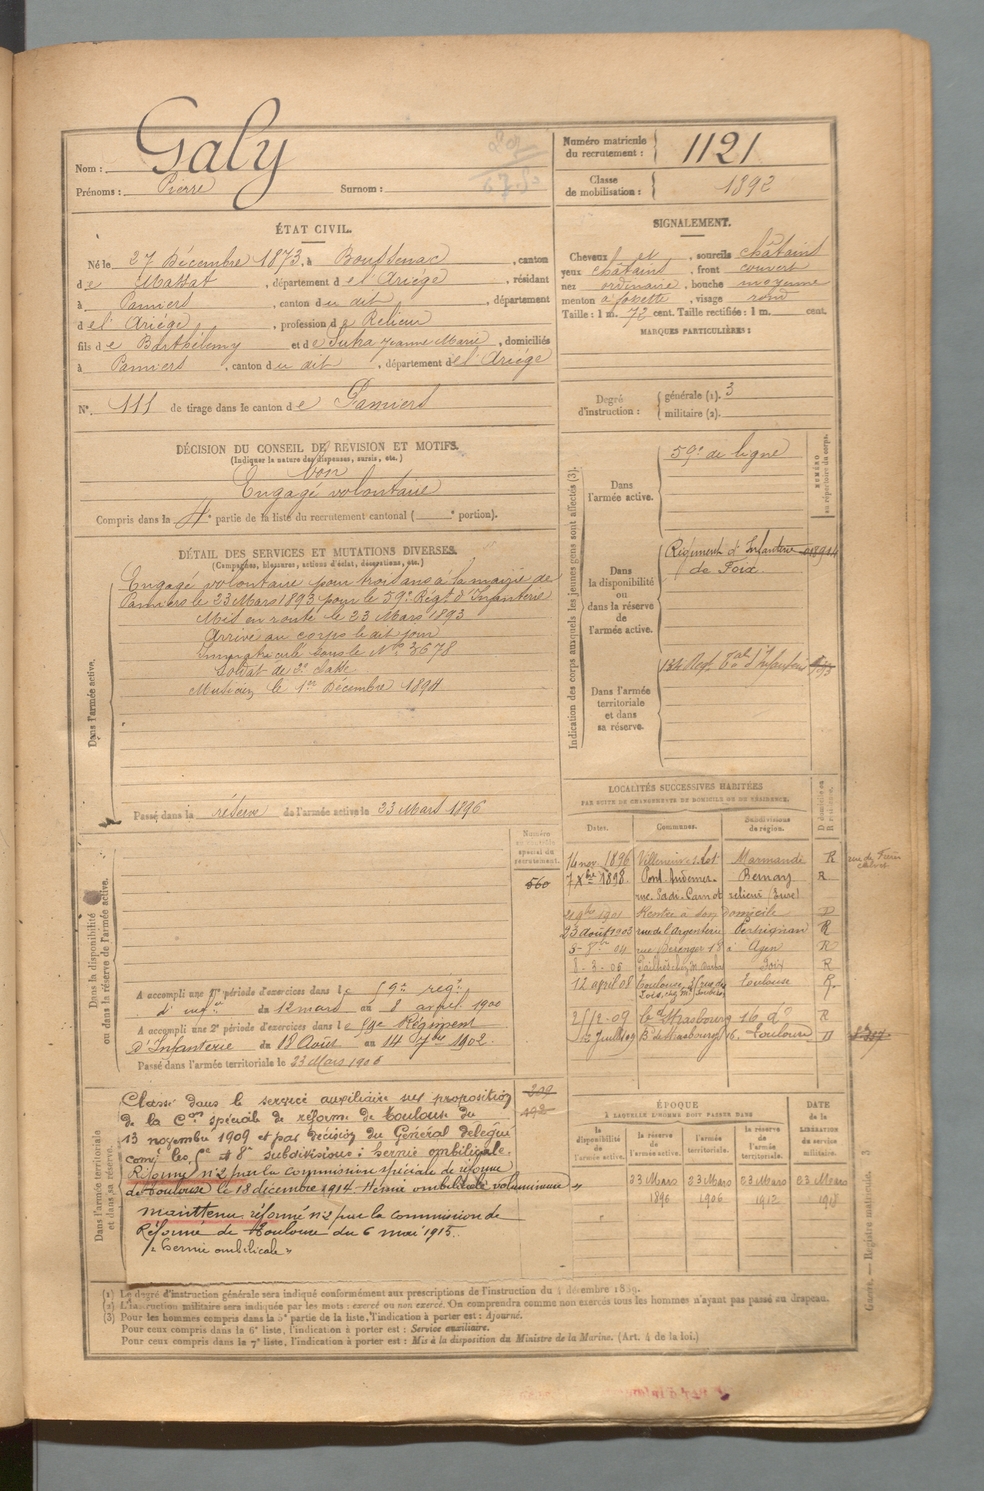 Nom : Galy
Prénoms : Pierre Surnom :
Numéro matricule du recrutement : 1121
Classe de mobilisation : 1892
ÉTAT CIVIL.
Né le 27 Décembre 1873, à Boussenac, canton
de Massat, département de l'Ariège, résidant
à Pamiers, canton du dit, département
de l'Ariège, profession de Relieur
fils de Barthélemy et de Jeanne Marie, domiciliés
à Pamiers, canton du dit, département de l'Ariège
N° 111 de tirage dans le canton de Pamiers
SIGNALEMENT.
Cheveux et, sourcils châtains
yeux châtains, front couvert
nez ordinaire, bouche moyenne
menton à fossette, visage rond
Taille : 1 m. 72 cent. Taille rectifiée : 1 m. cent.
MARQUES PARTICULIÈRES :
Degré d'instruction : générale (1). 3
militaire (2).
DÉCISION DU CONSEIL DE REVISION ET MOTIFS.
(Indiquer la nature des dispenses, sursis, etc.)
bon
Engagé volontaire
Compris dans la 4e partie de la liste du recrutement cantonal ( e portion).
DÉTAIL DES SERVICES ET MUTATIONS DIVERSES.
(Campagnes, blessures, actions d'éclat, décorations, etc.)
Dans l'armée active.
Engagé volontaire pour trois ans à la mairie de
Pamiers le 23 Mars 1893 pour le 59e Régt d'Infanterie
Mis en route le 23 Mars 1893
Arrivé au corps le dit jour
Immatriculé sous le N° 3678
Soldat de 2e classe
Musicien le 1er Décembre 1894
Passé dans la réserve de l'armée active le 23 Mars 1896
Indication des corps auxquels les jeunes gens sont affectés (3).
NUMÉRO au répertoire du corps.
Dans l'armée active.
59e de ligne
Dans la disponibilité ou dans la réserve de l'armée active.
Régiment d'Infanterie
de Foix
Dans l'armée territoriale et dans sa réserve.
134 Régt Tal d'Infanterie
LOCALITÉS SUCCESSIVES HABITÉES
PAR SUITE DE CHANGEMENTS DE DOMICILE OU DE RÉSIDENCE.
Dates. Communes. Subdivisions de région. D domicile ou R résidence.
14 nov. 1896 Villeneuve s. Lot Marmande R
7 Xbre 1898 Pont Audemer Bernay R
rue Sadi-Carnot relieur (Eure)
Rentré à son domicile D
23 août 1903 rue de l'Argenterie Perpignan R
5-8bre 04 rue Béranger 18 à Agen R
8-3-05 Foix R
12 avril 08 Toulouse Toulouse R
25/2-09 Bd Strasbourg 16 do R
12 Juillet 09 Bd de Strasbourg 16 Toulouse D
Dans la disponibilité ou dans la réserve de l'armée active.
Numéro au contrôle spécial du recrutement.
560
A accompli une 1re période d'exercices dans le 59e régt
d'infie du 12 mars au 8 avril 1900
A accompli une 2e période d'exercices dans le 59e Régiment
d'Infanterie du 18 Août au 14 7bre 1902
Passé dans l'armée territoriale le 23 Mars 1906
Dans l'armée territoriale et dans sa réserve.
Classé dans le service auxiliaire sur proposition
de la Con spéciale de réforme de Toulouse du
13 novembre 1909 et par décision du Général délégué
comt les 6e et 8e subdivisions : hernie ombilicale.
Réformé n°2 par la commission spéciale de réforme
de Toulouse le 18 décembre 1914. Hernie ombilicale volumineuse »
Maintenu réformé n°2 par la commission de
Réforme de Toulouse du 6 mai 1915.
« hernie ombilicale »
ÉPOQUE
À LAQUELLE L'HOMME DOIT PASSER DANS
DATE de la LIBÉRATION du service militaire.
la disponibilité de l'armée active. la réserve de l'armée active. l'armée territoriale. la réserve de l'armée territoriale.
23 Mars 1896 23 Mars 1906 23 Mars 1912 23 Mars 1918
(1) Le degré d'instruction générale sera indiqué conformément aux prescriptions de l'instruction du 4 décembre 1889.
(2) L'instruction militaire sera indiquée par les mots : exercé ou non exercé. On comprendra comme non exercés tous les hommes n'ayant pas passé au drapeau.
(3) Pour les hommes compris dans la 5e partie de la liste, l'indication à porter est : Ajourné.
Pour ceux compris dans la 6e liste, l'indication à porter est : Service auxiliaire.
Pour ceux compris dans la 7e liste, l'indication à porter est : Mis à la disposition du Ministre de la Marine. (Art. 4 de la loi.)